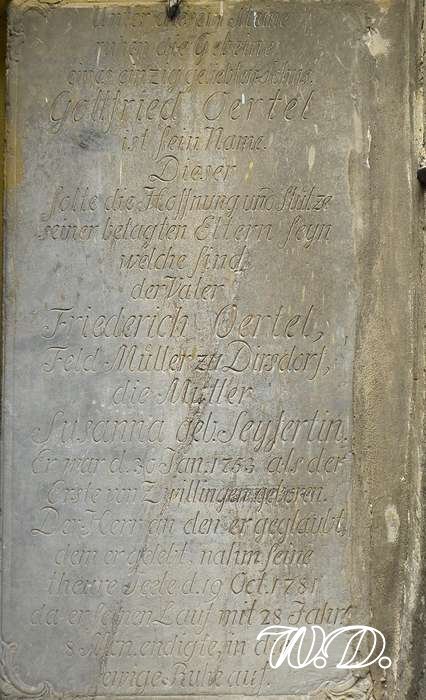 Unter diesem Steine
ruhen die Gebeine
eines einzig geliebten Sohns.
Gottfried Oertel
ist sein Name.
Dieser
solte die Hoffnung und Stütze
seiner betagten Eltern seyn
welche sind
der Vater
Friederich Oertel,
Feld-Müller zu Dirsdorf,
die Mutter
Susanna geb: Seyfertin.
Er war d. 30 Jan. 1753 als der
Erste von Zwillingen geboren.
Der Herr an den er geglaubt,
dem er gelebt, nahm seine
theure Seele d. 19 Oct. 1781
da er seinen Lauf mit 28 Jahr,
8 Mon. endigte, in die
ewige Ruhe auf.
W.D.